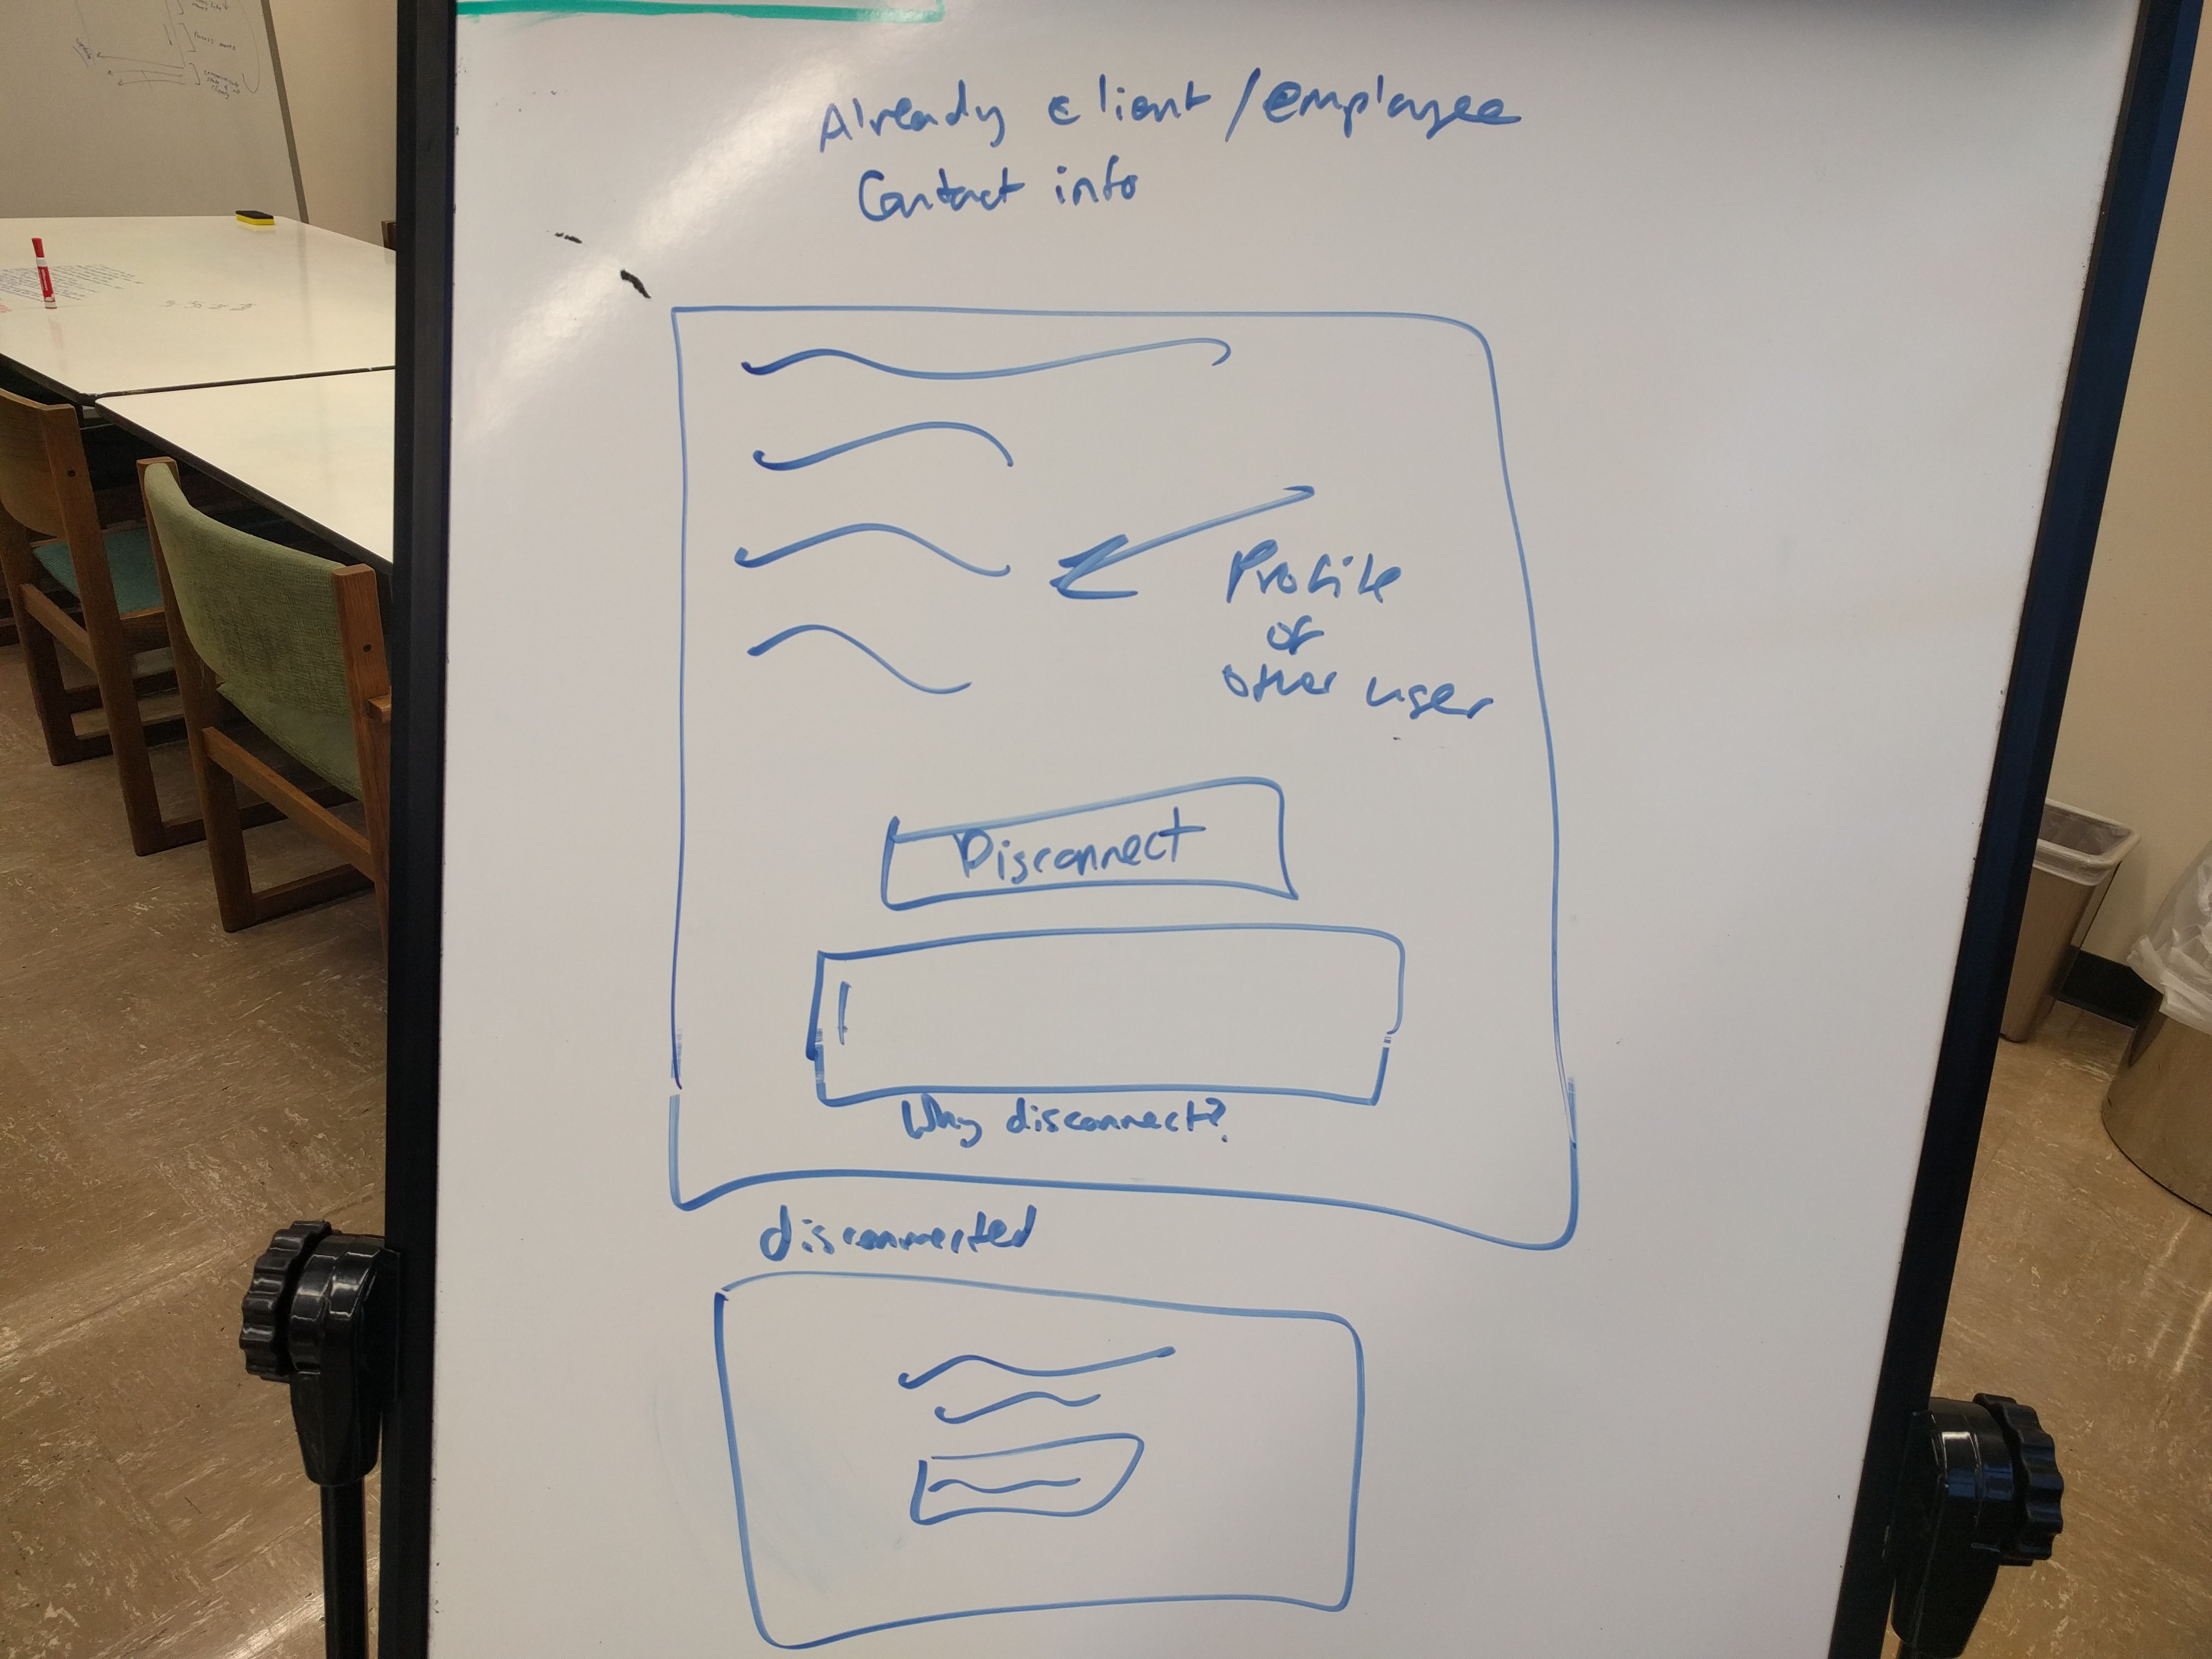 Already client/employee
Contact info
Profile
of
other user
Disconnect
Why disconnect?
disconnected